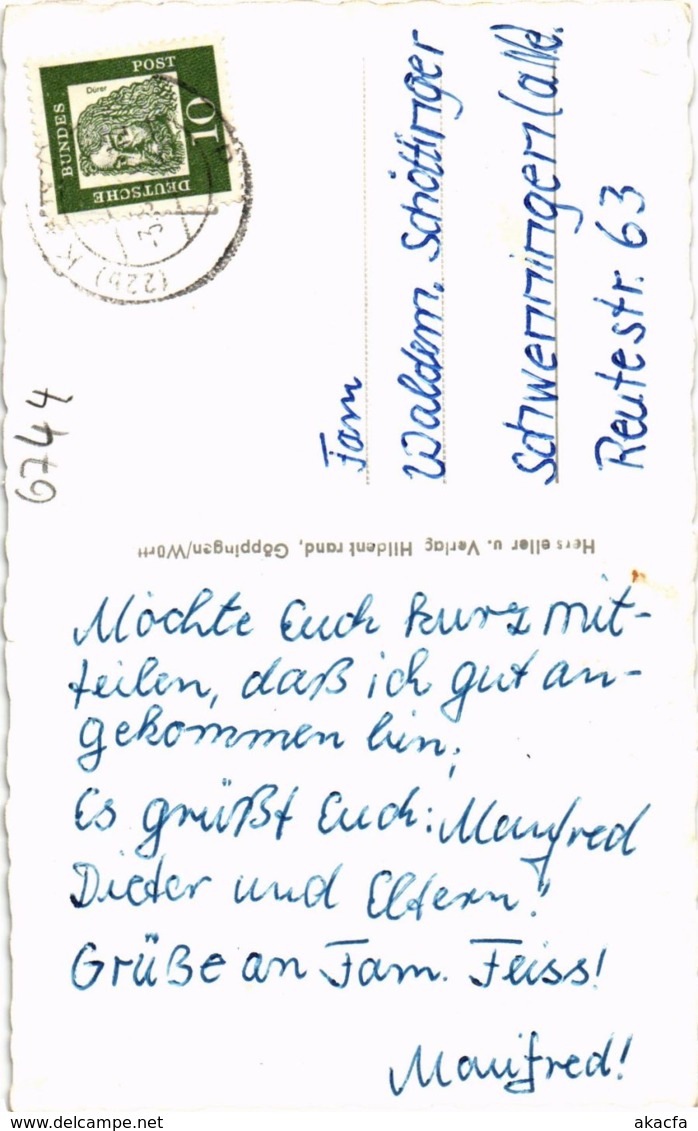 Dürer
DEUTSCHE
BUNDES
POST
10
(22b) K
6744
Fam
Waldem. Schöttinger
Schwenningen/a/Ne.
Reutestr. 63
Hersteller u. Verlag Hildenbrand, Göppingen/Württ
Möchte Euch kurz mit-
teilen, daß ich gut an-
gekommen bin;
Es grüßt Euch: Manfred
Dieter und Eltern!
Grüße an Fam. Feiss!
Manfred!
akacfa